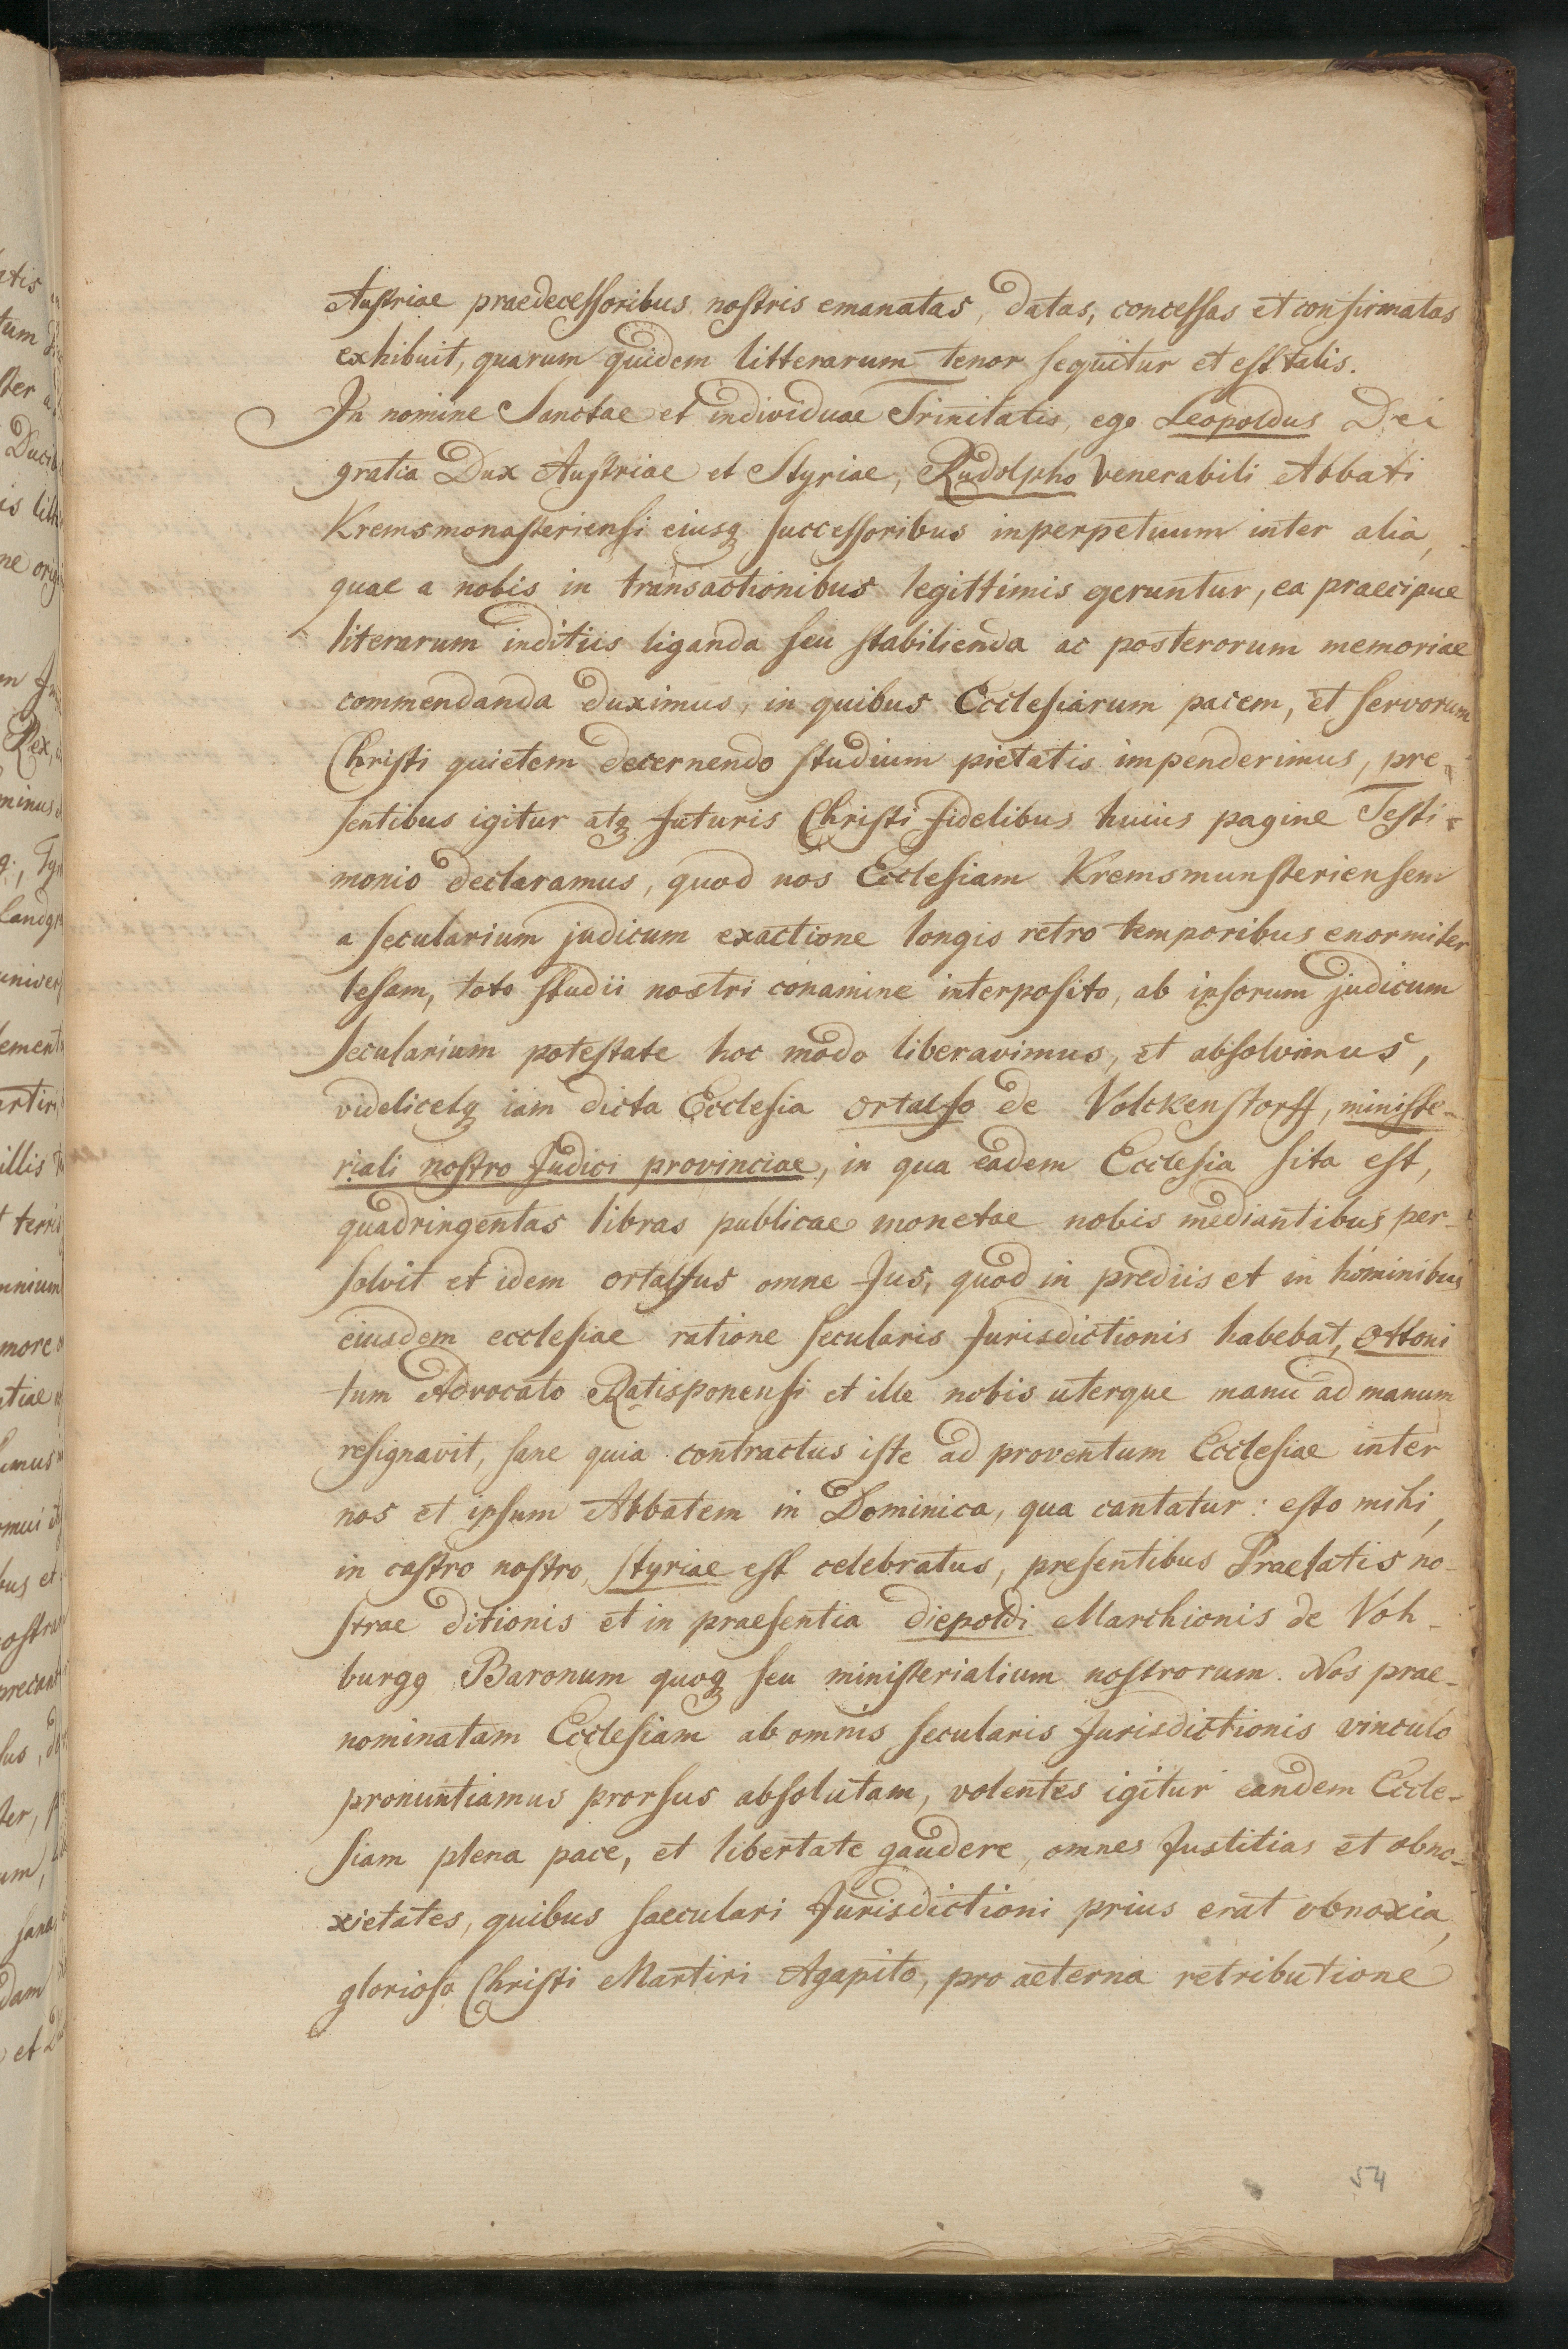 Austriae praedecessoribus nostris emanatas, datas, concessas et confirmatas
exhibuit, quarum quidem litterarum tenor sequitur et est talis.
In nomine Sanctae et individuae Trinitatis, ego Leopoldus Dei
gratia Dux Austriae et Styriae, Rudolpho Venerabili Abbati
Kremsmonasteriensi eiusq successoribus inperpetuum inter alia,
quae a nobis in transactionibus legittimis geruntur, ea praecipue
literarum inditiis liganda seu stabilienda ac posterorum memoriae
commendanda duximus, in quibus Ecclesiarum pacem, et servorum
Christi quietem decernendo studium pietatis impenderimus, pre-
sentibus igitur atq futuris Christi fidelibus huius pagine Testi-
monio declaramus, quod nos Ecclesiam Kremsmunsteriensem
a secularium judicum exactione longis retro temporibus enormiter
lesam, toto studii nostri conamine interposito, ab ipsorum judicum
secularium potestate hoc modo liberavimus, et absolvimus,
videlicetq iam dicta Ecclesia ortolfo de Volckenstorff, ministe-
riali nostro Judici provinciae, in qua eadem Ecclesia sita est,
quadringentas libras publicae monetae nobis mediantibus per-
solvit et idem ortolfus omne Jus, quod in prediis et in hominibus
eiusdem ecclesiae ratione secularis Jurisdictionis habebat, Ottoni
tum Advocato Ratisponensi et ille nobis uterque manu ad manum
resignavit, sane quia contractus iste ad proventum Ecclesiae inter
nos et ipsum Abbatem in Dominica, qua cantatur: esto mihi,
in castro nostro, Styriae est celebratus, presentibus Praelatis no-
strae ditionis et in praesentia diepoldi Marchionis de Voh-
burgg Baronum quoq seu ministerialium nostrorum. Nos prae-
nominatam Ecclesiam ab omnis secularis Jurisdictionis vinculo
pronuntiamus prorsus absolutam, volentes igitur eandem Eccle-
siam plena pace, et libertate gaudere, omnes Justitias et obno-
xietates, quibus saeculari Jurisdictioni prius erat obnoxia,
glorioso Christi Martiri Agapito, pro aeterna retributione
54